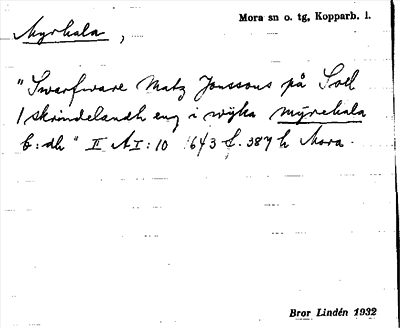 Mora sn o. tg, Kopparb. l.
Myrkala,
"Swarfware Matz Jonssons på Soll
1 skrindelandh eng i wijka myrekala
b:dh" II AI:10 1643 f. 387 h Mora.
Bror Lindén 1932